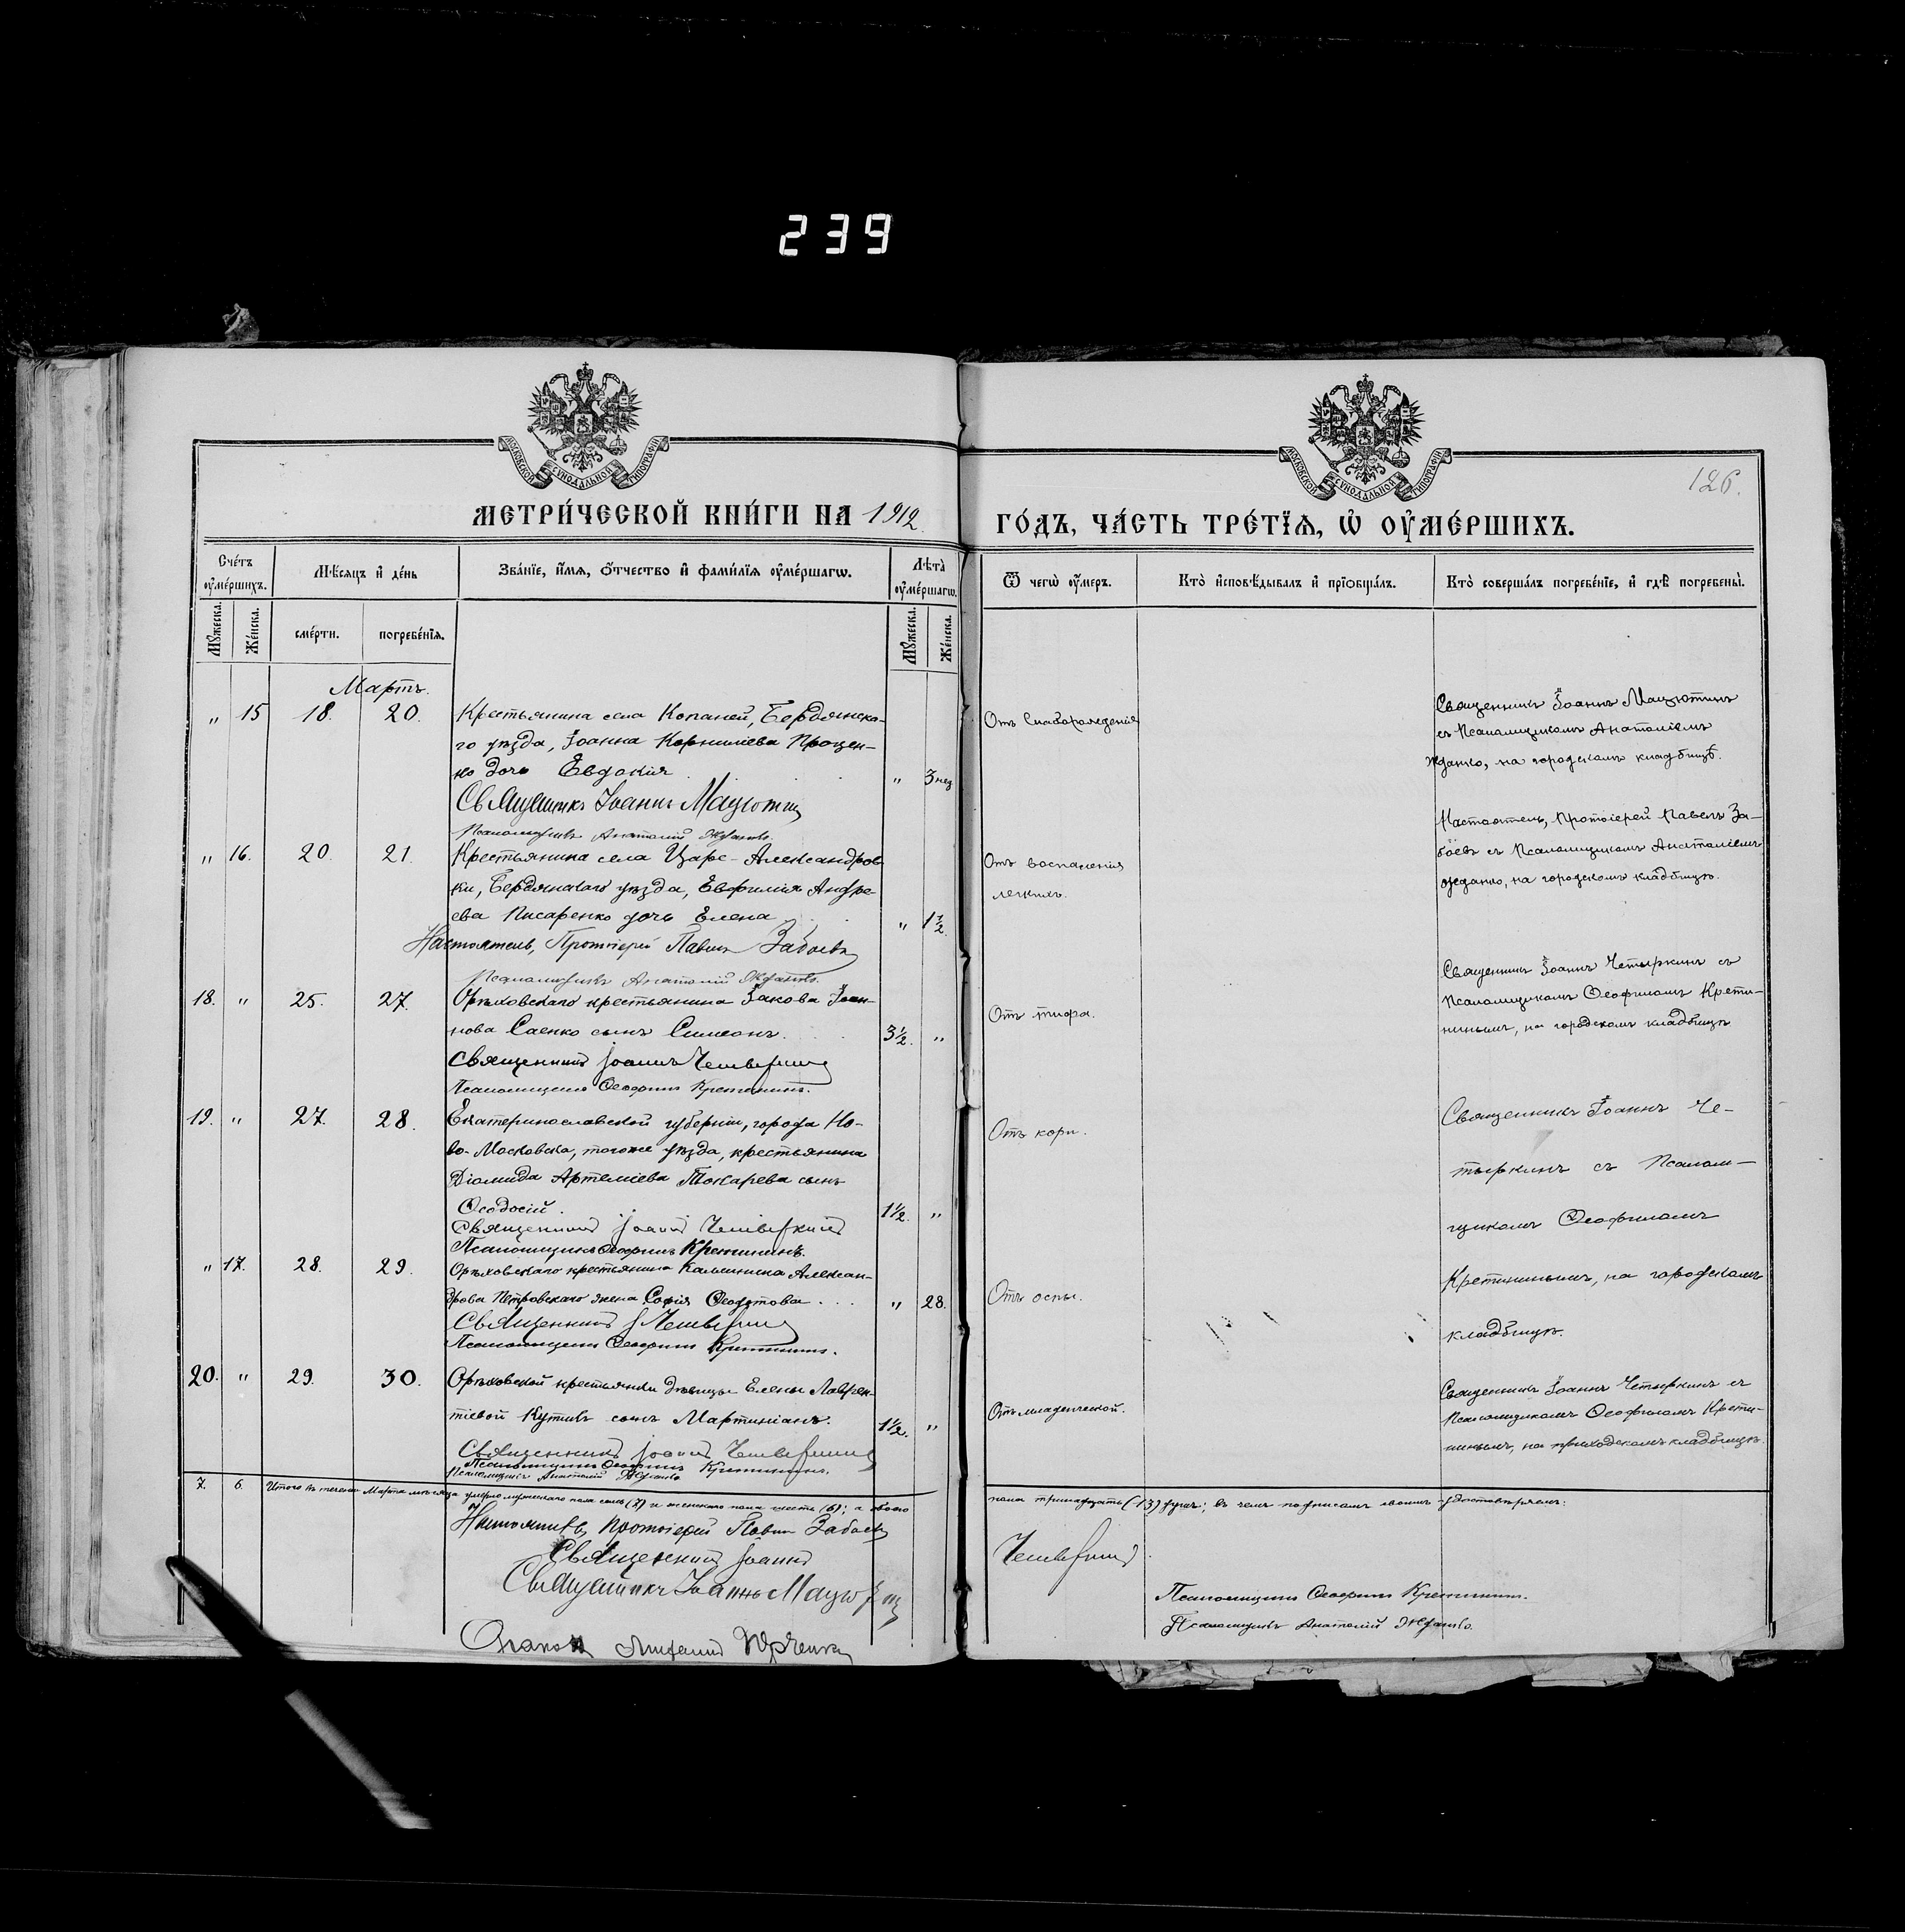 239
МОСКОВСКОЙ СУНОДАЛЬНОЙ ТИПОГРАФІИ
МОСКОВСКОЙ СУНОДАЛЬНОЙ ТИПОГРАФІИ
126.
МЕТРИ́ЧЕСКОЙ КНИ́ГИ НА 1912
ГО́ДЪ, ЧА́СТЬ ТРЕ́ТЇѦ, Ѡ҆ ОУ҆МЕ́РШИХЪ.
Сче́тъ оу҆ме́ршихъ.
Мѣ́сяцъ и҆ де́нь
Зва́нїе, и҆́мѧ, ѻ҆́тчество и҆ фами́лїѧ оу҆ме́ршагѡ.
Лѣта̀ оу҆ме́ршагѡ.
Ѿ чегѡ̀ оу҆́меръ.
Кто̀ и҆сповѣ́дывалъ и҆ прїѡбща́лъ.
Кто̀ соверша́лъ погребе́нїе, и҆ гдѣ̀ погребены̀.
Мꙋ́жеска.
Же́нска.
сме́рти.
погребе́нїѧ.
Мꙋ́жеска.
Же́нска.
Мартъ.
" 15 18. 20. Крестьянина села Копаней, Бердянска-
го уѣзда, Іоанна Корниліева Процен-
ко дочь Евдокія " 3 нед
Священникъ Іоаннъ Мацютинъ
Псаломщикъ Анатолій Жданко.
Отъ слаборожденія
Священникъ Іоаннъ Мацютинъ
съ Псаломщикомъ Анатоліемъ
Жданко, на городскомъ кладбищѣ.
" 16. 20. 21. Крестьянина села Царе-Александров
ки, Бердянскаго уѣзда, Евфимія Андре-
ева Писаренко дочь Елена " 1½.
Настоятель, Протоіерей Павелъ Забоевъ
Псаломщикъ Анатолій Жданко.
Отъ воспаленія
легкихъ.
Настоятель, Протоіерей Павелъ За-
боевъ съ Псаломщикомъ Анатоліемъ
Жданко, на городскомъ кладбищѣ.
18. " 25. 27. Орѣховскаго крестьянина Іакова Іоан-
нова Саенко сынъ Симеонъ. 3½. "
Священникъ Іоаннъ Четыркинъ
Псаломщикъ Ѳеофилъ Кретининъ.
Отъ тифа.
Священникъ Іоаннъ Четыркинъ съ
Псаломщикомъ Ѳеофиломъ Крети-
нинымъ, на городскомъ кладбищѣ
19. " 27. 28. Екатеринославской губерніи, города Но-
во-Московска, тогоже уѣзда, крестьянина
Діомида Артеміева Токарева сынъ
Ѳеодосій. 1½. "
Священникъ Іоаннъ Четыркинъ
Псаломщикъ Ѳеофилъ Кретининъ.
Отъ кори.
Священникъ Іоаннъ Че-
тыркинъ съ Псалом-
щикомъ Ѳеофиломъ
Кретининымъ, на городскомъ
кладбищѣ.
" 17. 28. 29. Орѣховскаго крестьянина Калинника Алексан-
дрова Петровскаго жена Софія Ѳеодотова . . . " 28.
Священникъ І Четыркинъ
Псаломщикъ Ѳеофилъ Кретининъ.
Отъ оспы.
20. " 29. 30. Орѣховской крестьянки дѣвицы Елены Лаврен-
тіевой Кутивъ сынъ Мартиніанъ. 1½. "
Священникъ Іоаннъ Четыркинъ
Псаломщикъ Ѳеофилъ Кретининъ.
Псаломщикъ Анатолій Жданко
Отъ младенческой.
Священникъ Іоаннъ Четыркинъ съ
Псаломщикомъ Ѳеофиломъ Крети-
нинымъ, на приходскомъ кладбищѣ.
7. 6. Итого въ теченіи Марта мѣсяца умерло мужескаго пола семь (7) и женскаго пола шесть (6); а обоего
пола тринадцать (13) душъ; въ чемъ подписомъ своимъ удостовѣряемъ:
Настоятель, Протоіерей Павелъ Забоевъ
Священникъ Іоаннъ Четыркинъ
Священникъ Іоаннъ Мацютинъ
Псаломщикъ Ѳеофилъ Кретининъ.
Псаломщикъ Анатолій Жданко.